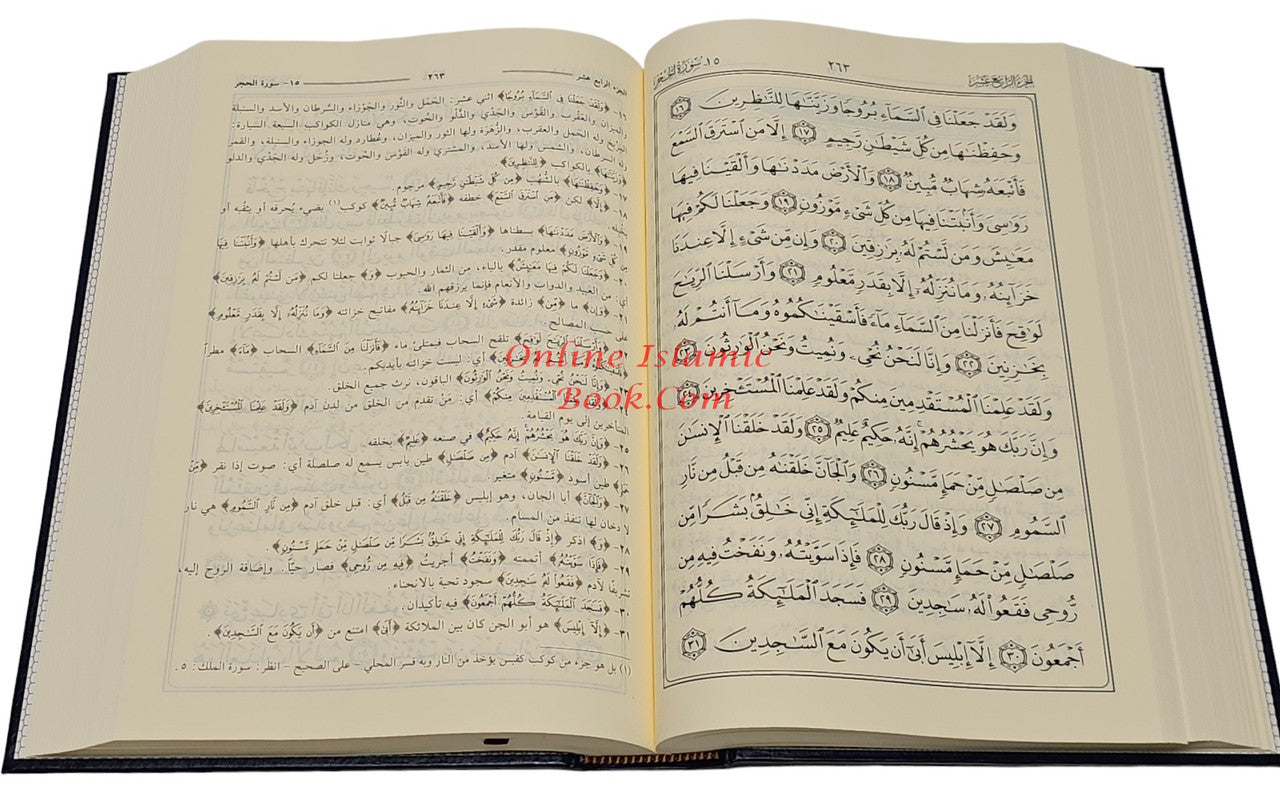 الجزء الرابع عشر ٢٦٣ ١٥- سورة الحجر
وَلَقَدْ جَعَلْنَا فِي ٱلسَّمَآءِ بُرُوجًا وَزَيَّنَّـٰهَا لِلنَّـٰظِرِينَ ١٦
وَحَفِظْنَـٰهَا مِن كُلِّ شَيْطَـٰنٍ رَّجِيمٍ ١٧ إِلَّا مَنِ ٱسْتَرَقَ ٱلسَّمْعَ
فَأَتْبَعَهُۥ شِهَابٌ مُّبِينٌ ١٨ وَٱلْأَرْضَ مَدَدْنَـٰهَا وَأَلْقَيْنَا فِيهَا
رَوَٰسِيَ وَأَنۢبَتْنَا فِيهَا مِن كُلِّ شَيْءٍ مَّوْزُونٍ ١٩ وَجَعَلْنَا لَكُمْ فِيهَا
مَعَـٰيِشَ وَمَن لَّسْتُمْ لَهُۥ بِرَٰزِقِينَ ٢٠ وَإِن مِّن شَيْءٍ إِلَّا عِندَنَا
خَزَآئِنُهُۥ وَمَا نُنَزِّلُهُۥٓ إِلَّا بِقَدَرٍ مَّعْلُومٍ ٢١ وَأَرْسَلْنَا ٱلرِّيَـٰحَ
لَوَٰقِحَ فَأَنزَلْنَا مِنَ ٱلسَّمَآءِ مَآءً فَأَسْقَيْنَـٰكُمُوهُ وَمَآ أَنتُمْ لَهُۥ
بِخَـٰزِنِينَ ٢٢ وَإِنَّا لَنَحْنُ نُحْيِۦ وَنُمِيتُ وَنَحْنُ ٱلْوَٰرِثُونَ ٢٣
وَلَقَدْ عَلِمْنَا ٱلْمُسْتَقْدِمِينَ مِنكُمْ وَلَقَدْ عَلِمْنَا ٱلْمُسْتَـْٔخِرِينَ ٢٤
وَإِنَّ رَبَّكَ هُوَ يَحْشُرُهُمْ إِنَّهُۥ حَكِيمٌ عَلِيمٌ ٢٥ وَلَقَدْ خَلَقْنَا ٱلْإِنسَـٰنَ
مِن صَلْصَـٰلٍ مِّنْ حَمَإٍ مَّسْنُونٍ ٢٦ وَٱلْجَآنَّ خَلَقْنَـٰهُ مِن قَبْلُ مِن نَّارِ
ٱلسَّمُومِ ٢٧ وَإِذْ قَالَ رَبُّكَ لِلْمَلَـٰٓئِكَةِ إِنِّي خَـٰلِقٌۢ بَشَرًا مِّن
صَلْصَـٰلٍ مِّنْ حَمَإٍ مَّسْنُونٍ ٢٨ فَإِذَا سَوَّيْتُهُۥ وَنَفَخْتُ فِيهِ مِن
رُّوحِي فَقَعُوا۟ لَهُۥ سَـٰجِدِينَ ٢٩ فَسَجَدَ ٱلْمَلَـٰٓئِكَةُ كُلُّهُمْ
أَجْمَعُونَ ٣٠ إِلَّآ إِبْلِيسَ أَبَىٰٓ أَن يَكُونَ مَعَ ٱلسَّـٰجِدِينَ ٣١
الجزء الرابع عشر ٢٦٣ ١٥- سورة الحجر
١٦- ﴿وَلَقَدْ جَعَلْنَا فِي ٱلسَّمَآءِ بُرُوجًا﴾ اثني عشر: الحَمَل والثَّور والجَوْزاء والسَّرطان والأسد والسنبلة
والميزان والعقرب والقَوْس والجَدْي والدَّلْو والحُوت، وهي منازل الكواكب السبعة السيارة:
المِرِّيخ وله الحَمل والعقرب، والزُّهَرة ولها الثور والميزان، وعُطارد وله الجوزاء والسنبلة، والقمر
وله السرطان، والشمس ولها الأسد، والمشتري وله القَوْس والحُوت، وزُحَل وله الجَدْي والدلو
﴿وَزَيَّنَّـٰهَا﴾ بالكواكب ﴿لِلنَّـٰظِرِينَ﴾.
١٧- ﴿وَحَفِظْنَـٰهَا﴾ بالشُّهُب ﴿مِن كُلِّ شَيْطَـٰنٍ رَّجِيمٍ﴾ مرجوم.
١٨- ﴿إِلَّا﴾ لكن ﴿مَنِ ٱسْتَرَقَ ٱلسَّمْعَ﴾ خطفه ﴿فَأَتْبَعَهُۥ شِهَابٌ مُّبِينٌ﴾ كوكب(١) يضيء يُحرقه أو يثقُبه أو
يخبله.
١٩- ﴿وَٱلْأَرْضَ مَدَدْنَـٰهَا﴾ بسطناها ﴿وَأَلْقَيْنَا فِيهَا رَوَٰسِيَ﴾ جبالًا ثوابت لئلا تتحرك بأهلها ﴿وَأَنۢبَتْنَا فِيهَا
مِن كُلِّ شَيْءٍ مَّوْزُونٍ﴾ معلوم مقدر.
٢٠- ﴿وَجَعَلْنَا لَكُمْ فِيهَا مَعَـٰيِشَ﴾ بالياء، من الثمار والحبوب ﴿وَ﴾ جعلنا لكم ﴿مَن لَّسْتُمْ لَهُۥ بِرَٰزِقِينَ﴾
أي: من العبيد والدواب والأنعام فإنما يرزقهم الله.
٢١- ﴿وَإِن﴾ ما ﴿مِّن﴾ زائدة ﴿شَيْءٍ إِلَّا عِندَنَا خَزَآئِنُهُۥ﴾ مفاتيح خزائنه ﴿وَمَا نُنَزِّلُهُۥٓ إِلَّا بِقَدَرٍ مَّعْلُومٍ﴾
على حسب المصالح.
٢٢- ﴿وَأَرْسَلْنَا ٱلرِّيَـٰحَ لَوَٰقِحَ﴾ تلقح السحاب فيمتلئ ماء ﴿فَأَنزَلْنَا مِنَ ٱلسَّمَآءِ﴾ السحاب ﴿مَآءً﴾ مطرًا
أي: ليست خزائنه بأيديكم.
٢٣- ﴿وَإِنَّا لَنَحْنُ نُحْيِۦ وَنُمِيتُ وَنَحْنُ ٱلْوَٰرِثُونَ﴾ الباقون، نرث جميع الخلق.
٢٤- ﴿وَلَقَدْ عَلِمْنَا ٱلْمُسْتَقْدِمِينَ مِنكُمْ﴾ أي: مَنْ تقدم من الخلق من لدن آدم ﴿وَلَقَدْ عَلِمْنَا ٱلْمُسْتَـْٔخِرِينَ﴾
المتأخرين إلى يوم القيامة.
٢٥- ﴿وَإِنَّ رَبَّكَ هُوَ يَحْشُرُهُمْ إِنَّهُۥ حَكِيمٌ﴾ في صنعه ﴿عَلِيمٌ﴾ بخلقه.
٢٦- ﴿وَلَقَدْ خَلَقْنَا ٱلْإِنسَـٰنَ﴾ آدم ﴿مِن صَلْصَـٰلٍ﴾ طين يابس يسمع له صلصلة أي: صوت إذا نقر ﴿مِّنْ
حَمَإٍ﴾ طين أسود ﴿مَّسْنُونٍ﴾ متغير.
٢٧- ﴿وَٱلْجَآنَّ﴾ أبا الجان، وهو إبليس ﴿خَلَقْنَـٰهُ مِن قَبْلُ﴾ أي: قبل خلق آدم ﴿مِن نَّارِ ٱلسَّمُومِ﴾ هي نار
لا دخان لها تنفذ من المسام.
٢٨- ﴿وَ﴾ اذكر ﴿إِذْ قَالَ رَبُّكَ لِلْمَلَـٰٓئِكَةِ إِنِّي خَـٰلِقٌۢ بَشَرًا مِّن صَلْصَـٰلٍ مِّنْ حَمَإٍ مَّسْنُونٍ﴾.
٢٩- ﴿فَإِذَا سَوَّيْتُهُۥ﴾ أتممته ﴿وَنَفَخْتُ﴾ أجريتُ ﴿فِيهِ مِن رُّوحِي﴾ فصار حيًّا. وإضافة الروح إليه،
تشريفًا لآدم ﴿فَقَعُوا۟ لَهُۥ سَـٰجِدِينَ﴾ سجود تحية بالانحناء.
٣٠- ﴿فَسَجَدَ ٱلْمَلَـٰٓئِكَةُ كُلُّهُمْ أَجْمَعُونَ﴾ فيه تأكيدان.
٣١- ﴿إِلَّآ إِبْلِيسَ﴾ هو أبو الجن كان بين الملائكة ﴿أَبَىٰٓ﴾ امتنع من ﴿أَن يَكُونَ مَعَ ٱلسَّـٰجِدِينَ﴾.
(١) بل هو جزء من كوكب كقبس يؤخذ من النار وبه فسر المحلي – على الصحيح – انظر: سورة الملك: ٥.
Online Islamic
Book.Com